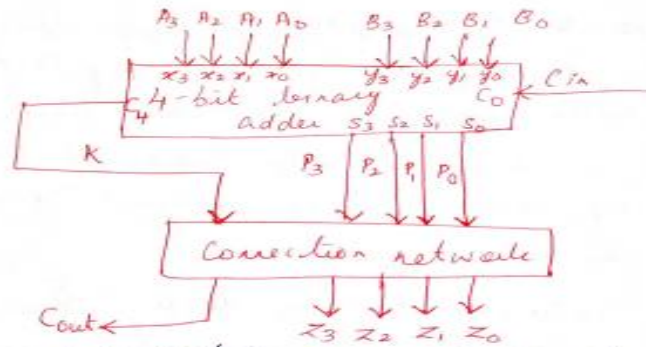 A3 A2 A1 A0 B3 B2 B1 B0
x3 x2 x1 x0 y3 y2 y1 y0
C4 4-bit binary C0 Cin
adder S3 S2 S1 S0
K P3 P2 P1 P0
Correction network
Cout Z3 Z2 Z1 Z0